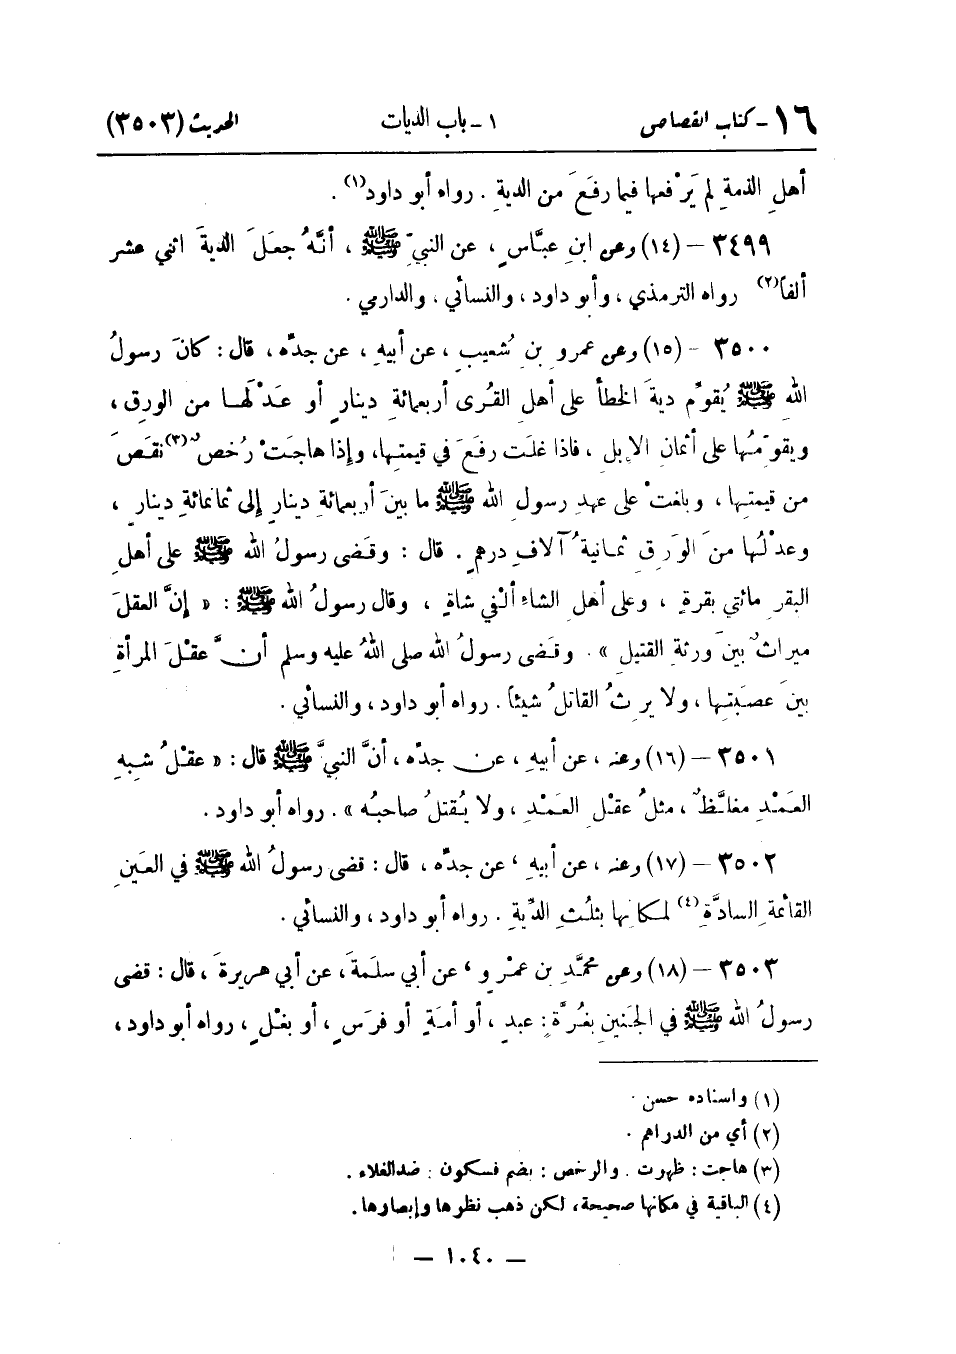 ١٦ - كتاب القصاص ١ - باب الديات الحديث (٣٥٠٣)
أهلِ الذمةِ لم يَرْفعها فيما رفَعَ من الديةِ . رواه أبو داود(١) .
٣٤٩٩ - (١٤) وعن ابنِ عبَّاسٍ ، عن النبيِّ ﷺ ، أنَّهُ جعَلَ الديةَ اثني عشر
ألفاً(٢) رواه الترمذي ، وأبو داود ، والنسائي ، والدارمي .
٣٥٠٠ - (١٥) وعن عمرو بنِ شُعيبٍ ، عن أبيهِ ، عن جدِّه ، قال : كانَ رسولُ
اللهِ ﷺ يُقوِّم ديةَ الخطأ على أهل القُرى أربعمائةِ دينارٍ أو عَدْلَها من الورِق ،
ويقوِّمُها على أثمانِ الإِبلِ ، فاذا غلَت رفَعَ في قيمتِها، وإذا هاجَتْ رُخصٌ(٣) نقَصَ
من قيمتِها ، وبلغتْ على عهدِ رسولِ الله ﷺ ما بينَ أربعمائةِ دينارٍ إلى ثمانمائةِ دينارٍ ،
وعدْلُها منَ الوَرِقِ ثمانيةُ آلافِ درهمٍ . قال : وقَضى رسولُ الله ﷺ على أهلِ
البقرِ مائتي بقرةٍ ، وعلى أهلِ الشاءِ ألْفي شاةٍ ، وقال رسولُ الله ﷺ : « إِنَّ العقلَ
ميراثٌ بينَ ورثةِ القتيلِ » . وقَضى رسولُ الله صلى اللهُ عليه وسلم أنَّ عقْلَ المرأةِ
بينَ عصَبَتِها ، ولا يرِثُ القاتلُ شيئاً . رواه أبو داود ، والنسائي .
٣٥٠١ - (١٦) وعنه ، عن أبيهِ ، عن جدِّه ، أنَّ النبيَّ ﷺ قال : « عقْلُ شبهِ
العَمْدِ مغلَّظٌ ، مثلُ عقْلِ العَمْدِ ، ولا يُقتلُ صاحبُه » . رواه أبو داود .
٣٥٠٢ - (١٧) وعنه ، عن أبيهِ ، عن جدِّه ، قال : قضى رسولُ الله ﷺ في العَينِ
القائمةِ السادَّةِ(٤) لمكانِها بثلُثِ الدِّيةِ . رواه أبو داود ، والنسائي .
٣٥٠٣ - (١٨) وعن محمَّدِ بنِ عمْرٍو ، عن أبي سلَمةَ ، عن أبي هريرةَ ، قال : قضى
رسولُ الله ﷺ في الجَنينِ بغُرَّةٍ : عبدٍ ، أو أمَةٍ أو فرَسٍ ، أو بغْلٍ ، رواه أبو داود ،
(١) واسناده حسن .
(٢) أي من الدراهم .
(٣) هاجت : ظهرت . والرخص : بضم فسكون : ضدالغلاء .
(٤) الباقية في مكانها صحيحة، لكن ذهب نظرها وإبصارها .
— ١٠٤٠ —